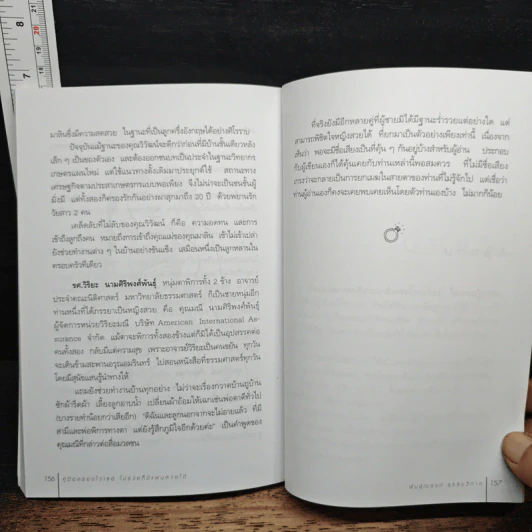 มาลินซึ่งมีความสดสวย ในฐานะที่เป็นลูกครึ่งอังกฤษได้อย่างดีโรราบ
ปัจจุบันแม้ฐานะของคุณวิวัฒน์จะดีกว่าก่อนที่มีบ้านชั้นเดียวหลัง
เล็ก ๆ เป็นของตัวเอง และต้องออกชนบทเป็นประจำในฐานะวิทยากร
เกษตรแผนใหม่ แต่ใช้แนวทางดั้งเดิมมาประยุกต์ใช้ สถานะทาง
เศรษฐกิจตามประสาเกษตรกรแบบพอเพียง จึงไม่น่าจะเป็นชนชั้นผู้
มั่งมี แต่ทั้งสองก็คงรักกันอย่างผาสุกมาถึง 20 ปี ด้วยพยานรัก
วัยสาว 2 คน
เคล็ดลับที่ไม่ลับของคุณวิวัฒน์ ก็คือ ความอดทน และการ
เข้าถึงลูกถึงคน หมายถึงการเข้าถึงคุณแม่ของคุณมาลิน เข้าไม่เข้าเปล่า
ยังช่วยทำงานต่าง ๆ ในบ้านอย่างขันแข็ง เสมือนหนึ่งเป็นลูกหลานใน
ครอบครัวทีเดียว
รศ.วิริยะ นามศิริพงศ์พันธุ์ หนุ่มตาพิการทั้ง 2 ข้าง อาจารย์
ประจำคณะนิติศาสตร์ มหาวิทยาลัยธรรมศาสตร์ ก็เป็นชายหนุ่มอีก
ท่านหนึ่งที่ได้ภรรยาเป็นหญิงสวย คือ คุณมณี นามศิริพงศ์พันธุ์
ผู้จัดการหน่วยวิริยะมณี บริษัท American International As-
surance จำกัด แม้ตาจะพิการทั้งสองข้างแต่ก็มิได้เป็นอุปสรรคต่อ
คนทั้งสอง กลับมีแต่ความสุข เพราะอาจารย์วิริยะเป็นคนขยัน ทุกวัน
จะเดินข้ามสะพานอรุณอมรินทร์ ไปสอนหนังสือที่ธรรมศาสตร์ทุกวัน
โดยมีสุนัขแสนรู้นำทางให้
แถมยังช่วยทำงานบ้านทุกอย่าง ไม่ว่าจะเรื่องกวาดบ้านถูบ้าน
ซักผ้ารีดผ้า เลี้ยงลูกอาบน้ำ เปลี่ยนผ้าอ้อมให้เฉกเช่นพ่อตาดีทั่วไป
(บางรายทำน้อยกว่าเสียอีก) "ดิฉันและลูกนอกจากจะไม่อายแล้ว ที่มี
สามีและพ่อพิการทางตา แต่ยังรู้สึกภูมิใจอีกด้วยค่ะ" เป็นคำพูดของ
คุณมณีที่กล่าวต่อสื่อมวลชน
156
ที่จริงยังมีอีกหลายคู่ที่ผู้ชายมิได้มีฐานะร่ำรวยแต่อย่างใด แต่
สามารถพิชิตใจหญิงสวยได้ ที่ยกมาเป็นตัวอย่างเพียงเท่านี้ เนื่องจาก
เห็นว่า พอจะมีชื่อเสียงเป็นที่คุ้น ๆ กันอยู่บ้างสำหรับผู้อ่าน ประกอบ
กับผู้เขียนเองก็ได้คุ้นเคยกับท่านเหล่านี้พอสมควร ที่ไม่มีชื่อเสียง
เกรงว่าจะกลายเป็นการยกเมฆในสายตาของท่านที่ไม่รู้จักไป แต่เชื่อว่า
ท่านผู้อ่านเองก็คงจะเคยพบเคยเห็นโดยตัวท่านเองบ้าง ไม่มากก็น้อย
157
8
7
21
20
19